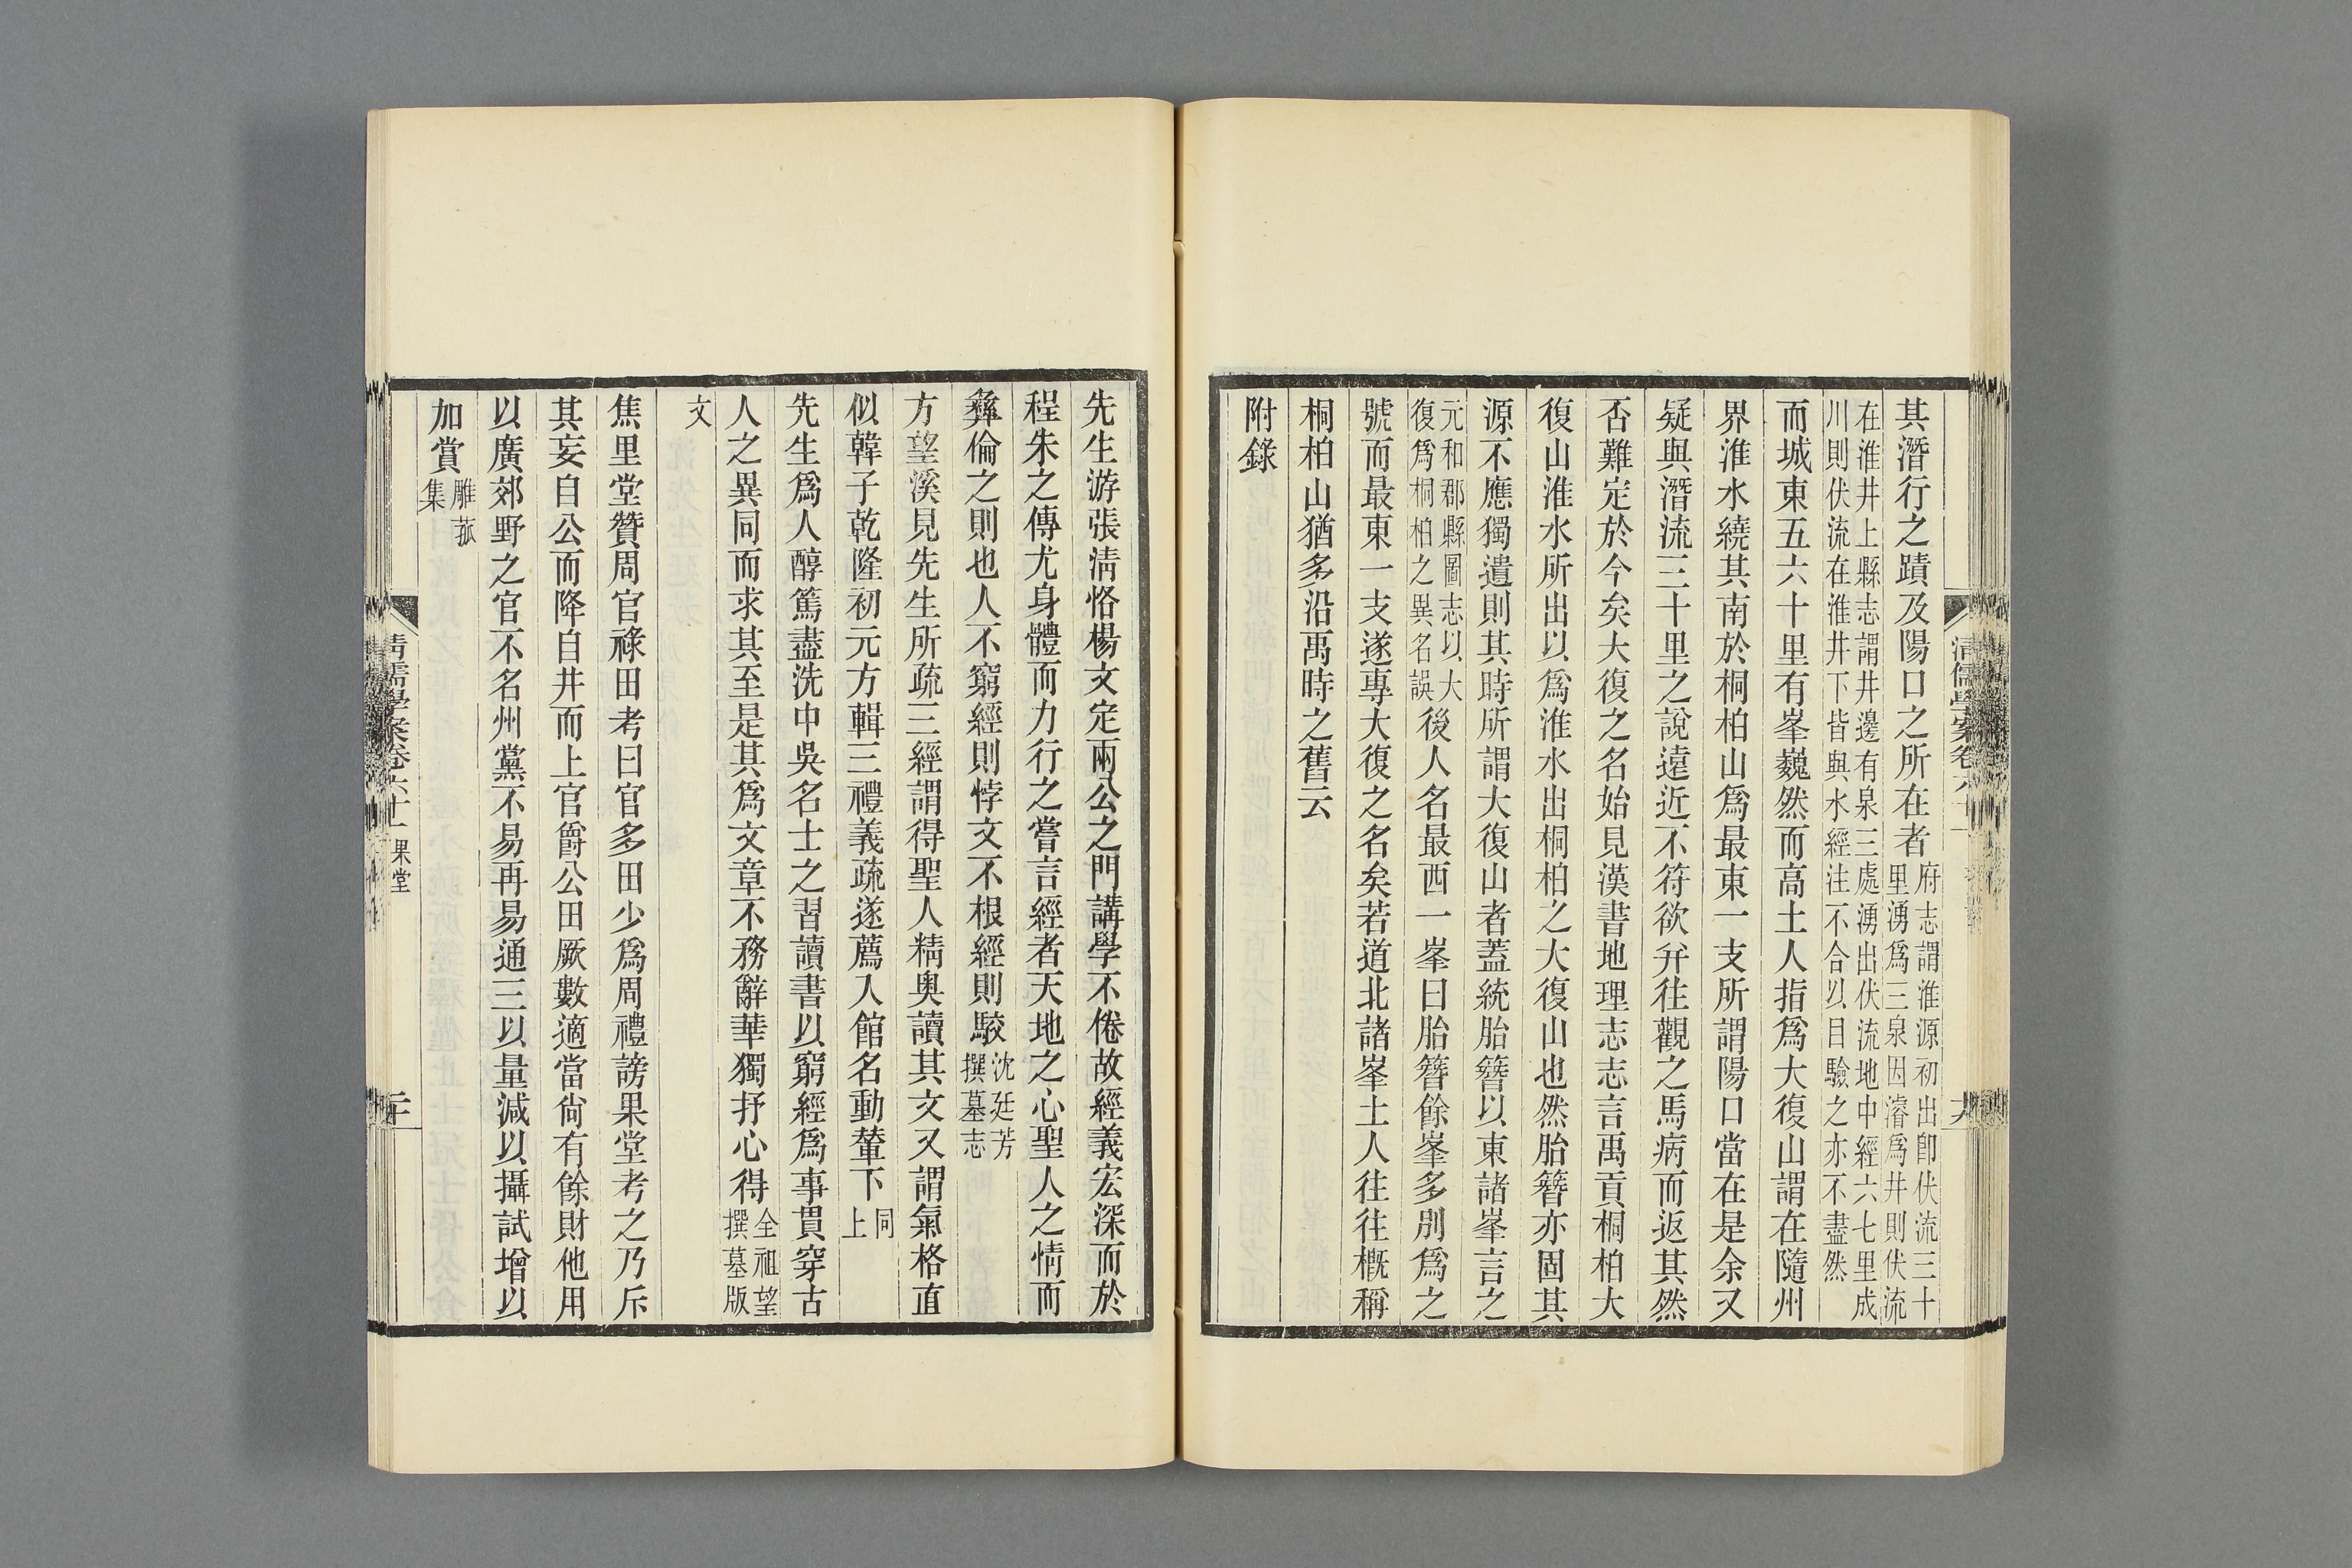 其潛行之蹟及陽口之所在者府志謂淮源初出卽伏流三十里湧爲三泉因濬爲井則伏流
在淮井上縣志謂井邊有泉三處湧出伏流地中經六七里成川則伏流在淮井下皆與水經注不合以目驗之亦不盡然
而城東五六十里有峯巍然而高土人指爲大復山謂在隨州
界淮水繞其南於桐柏山爲最東一支所謂陽口當在是余又
疑與潛流三十里之說遠近不符欲幷往觀之馬病而返其然
否難定於今矣大復之名始見漢書地理志志言禹貢桐柏大
復山淮水所出以爲淮水出桐柏之大復山也然胎簪亦固其
源不應獨遺則其時所謂大復山者蓋統胎簪以東諸峯言之
元和郡縣圖志以大復爲桐柏之異名誤後人名最西一峯曰胎簪餘峯多別爲之
號而最東一支遂專大復之名矣若道北諸峯土人往往槪稱
桐柏山猶多沿禹時之舊云
附錄
先生游張淸恪楊文定兩公之門講學不倦故經義宏深而於
程朱之傳尤身體而力行之嘗言經者天地之心聖人之情而
彝倫之則也人不窮經則悖文不根經則駮沈廷芳撰墓志
方望溪見先生所疏三經謂得聖人精奧讀其文又謂氣格直
似韓子乾隆初元方輯三禮義疏遂薦入館名動輦下同上
先生爲人醇篤盡洗中吳名士之習讀書以窮經爲事貫穿古
人之異同而求其至是其爲文章不務辭華獨抒心得全祖望撰墓版
文
焦里堂贊周官祿田考曰官多田少爲周禮謗果堂考之乃斥
其妄自公而降自井而上官爵公田厥數適當尙有餘財他用
以廣郊野之官不名州黨不易再易通三以量減以攝試增以
加賞雕菰集
淸儒學案卷六十一 果堂